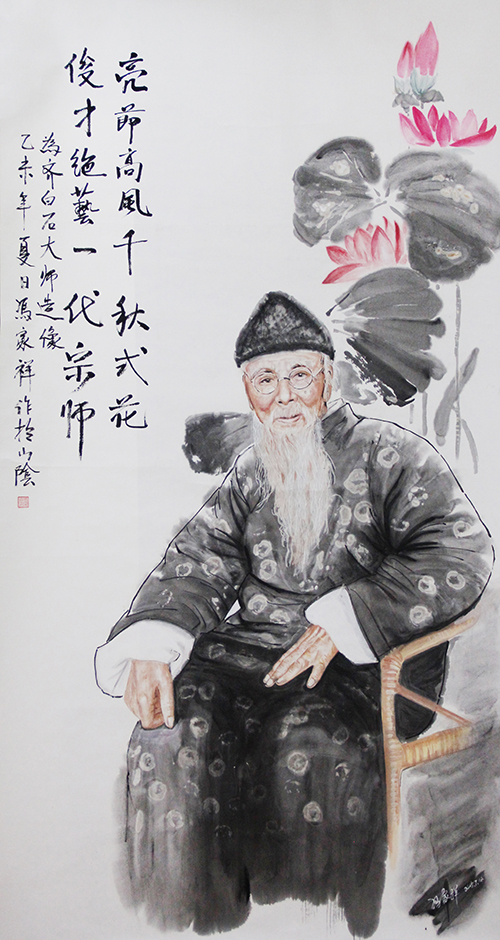 亮節高風千秋式花
俊才絶藝一代宗師
為齐白石大师造像
乙未年夏日馮家祥作於山陰
馮家祥